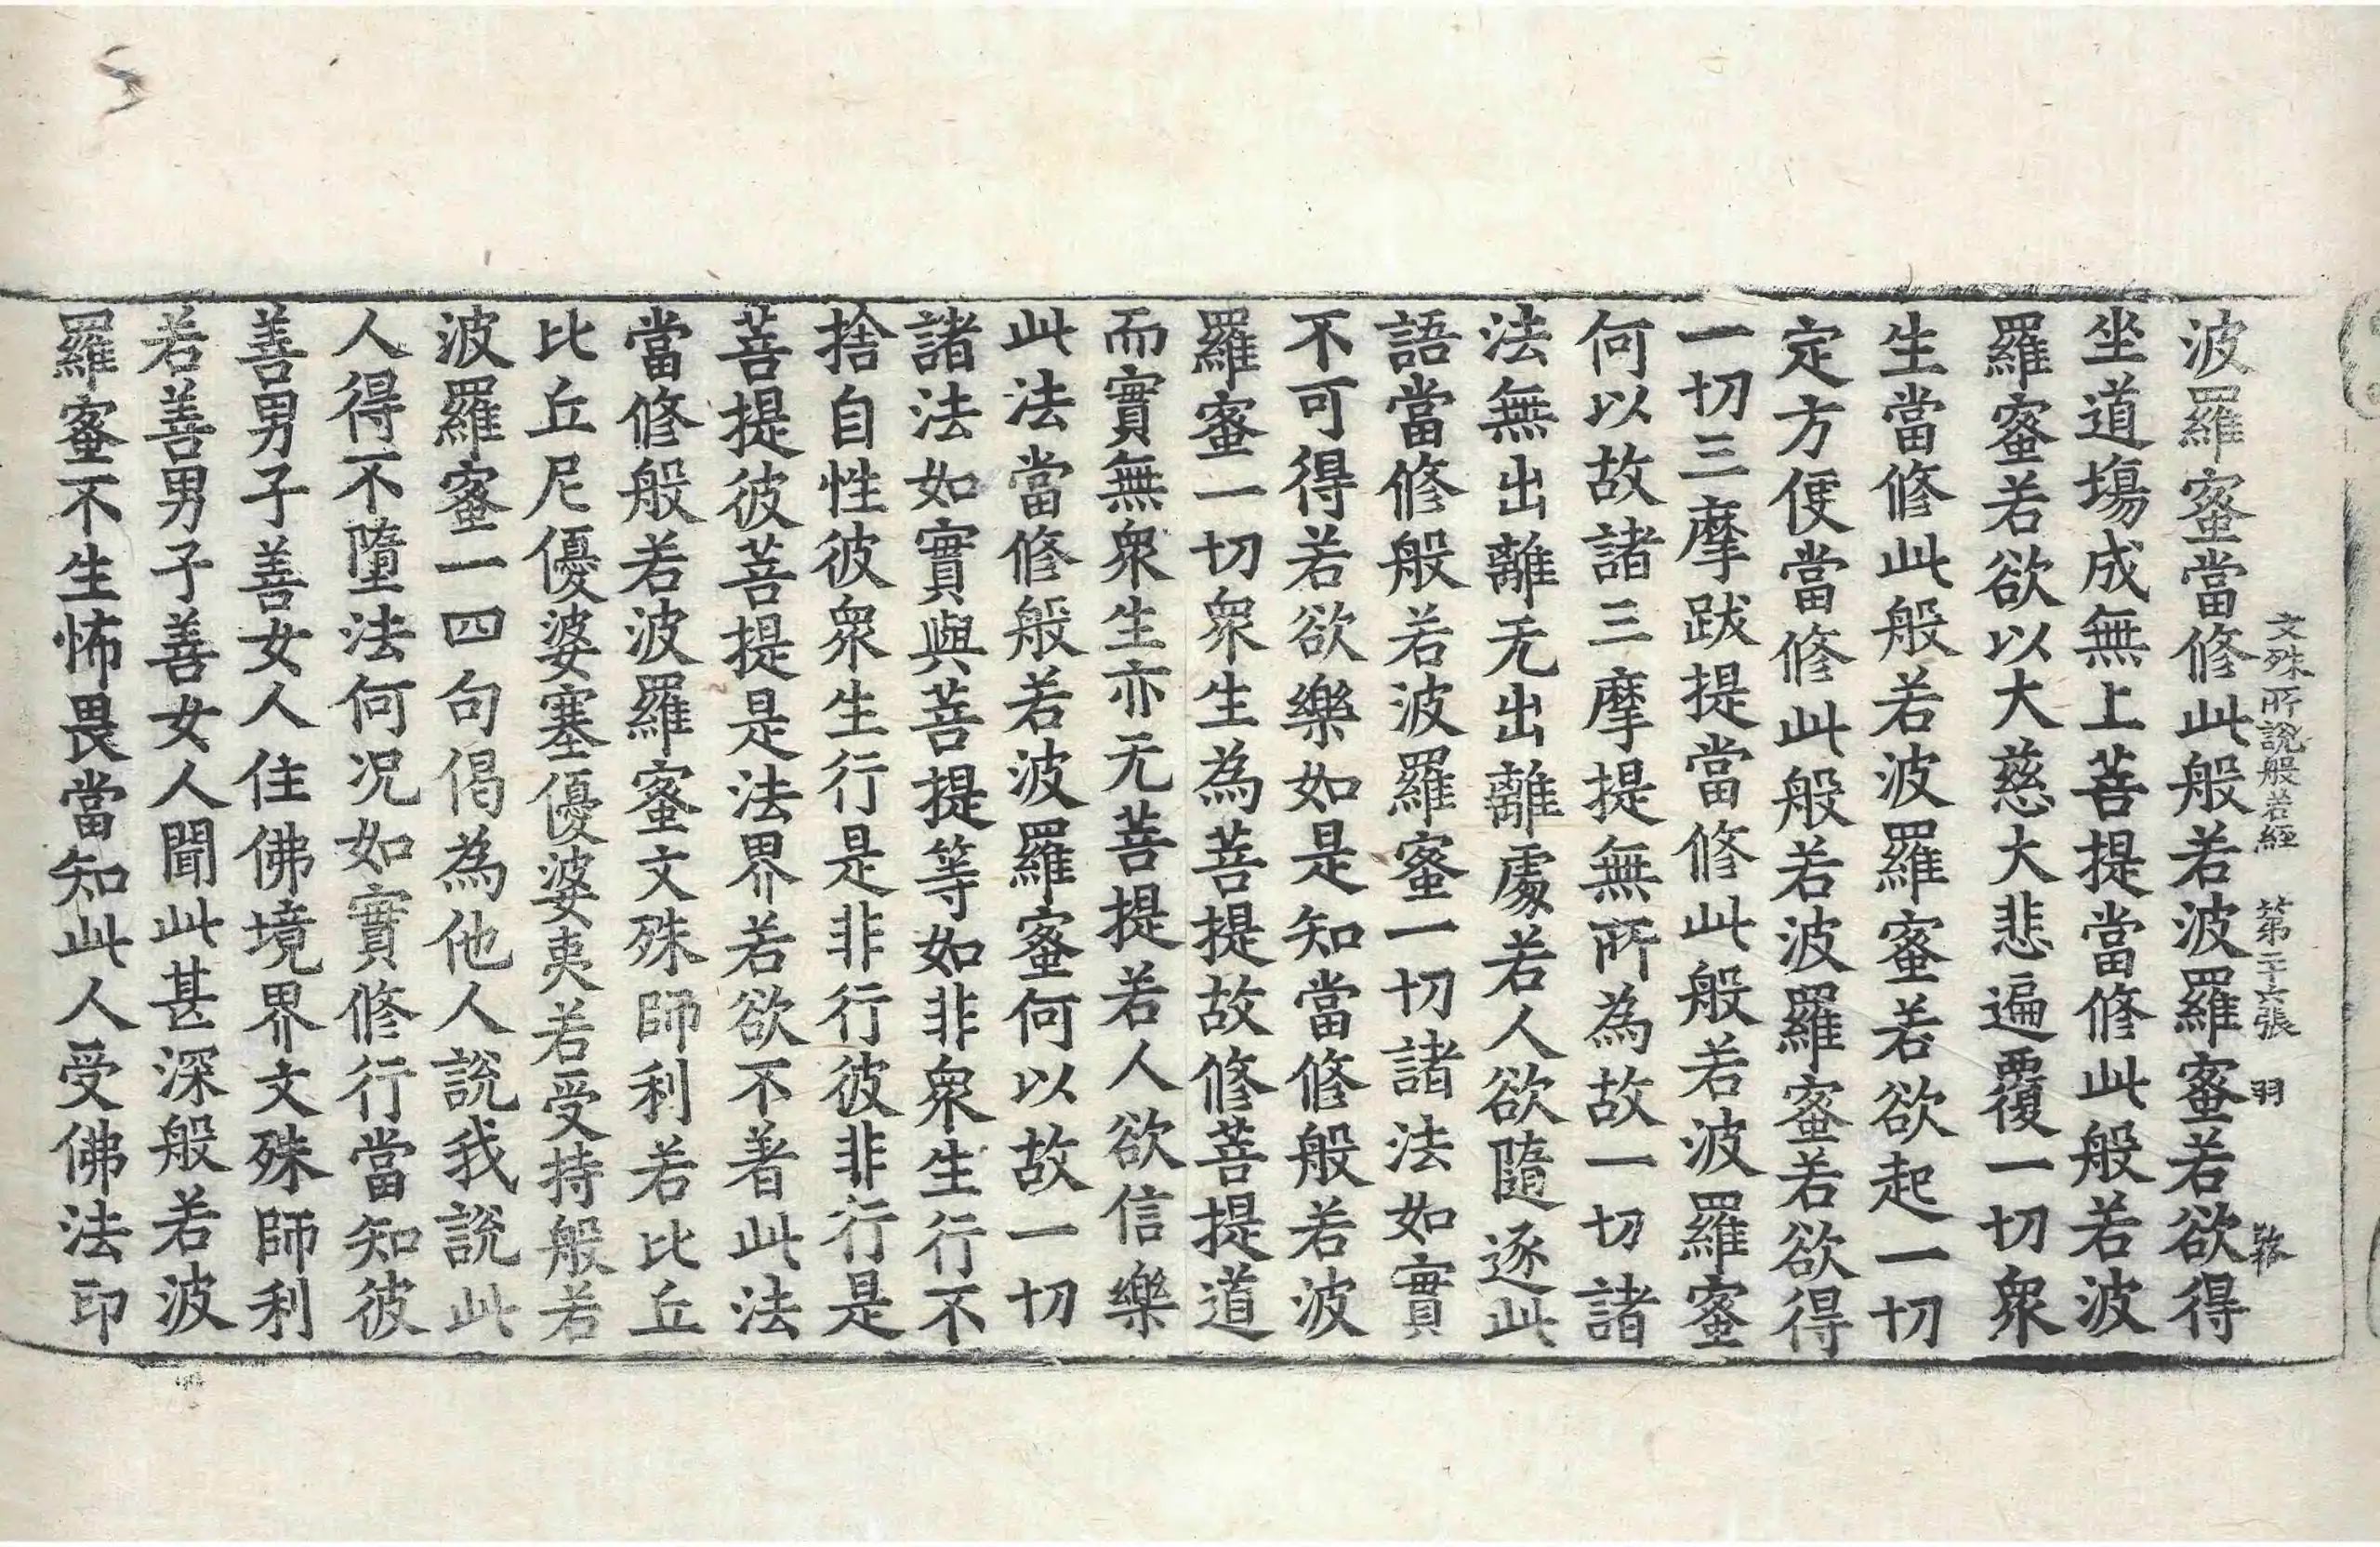 文殊所說般若經　第二十六張　羽
波羅蜜當修此般若波羅蜜若欲得
坐道場成無上菩提當修此般若波
羅蜜若欲以大慈大悲遍覆一切衆
生當修此般若波羅蜜若欲起一切
定方便當修此般若波羅蜜若欲得
一切三摩跋提當修此般若波羅蜜
何以故諸三摩提無所為故一切諸
法無出離无出離處若人欲隨逐此
語當修般若波羅蜜一切諸法如實
不可得若欲樂如是知當修般若波
羅蜜一切衆生為菩提故修菩提道
而實無衆生亦无菩提若人欲信樂
此法當修般若波羅蜜何以故一切
諸法如實與菩提等如非衆生行不
捨自性彼衆生行是非行彼非行是
菩提彼菩提是法界若欲不著此法
當修般若波羅蜜文殊師利若比丘
比丘尼優婆塞優婆夷若受持般若
波羅蜜一四句偈為他人說我說此
人得不墮法何况如實修行當知彼
善男子善女人住佛境界文殊師利
若善男子善女人聞此甚深般若波
羅蜜不生怖畏當知此人受佛法印